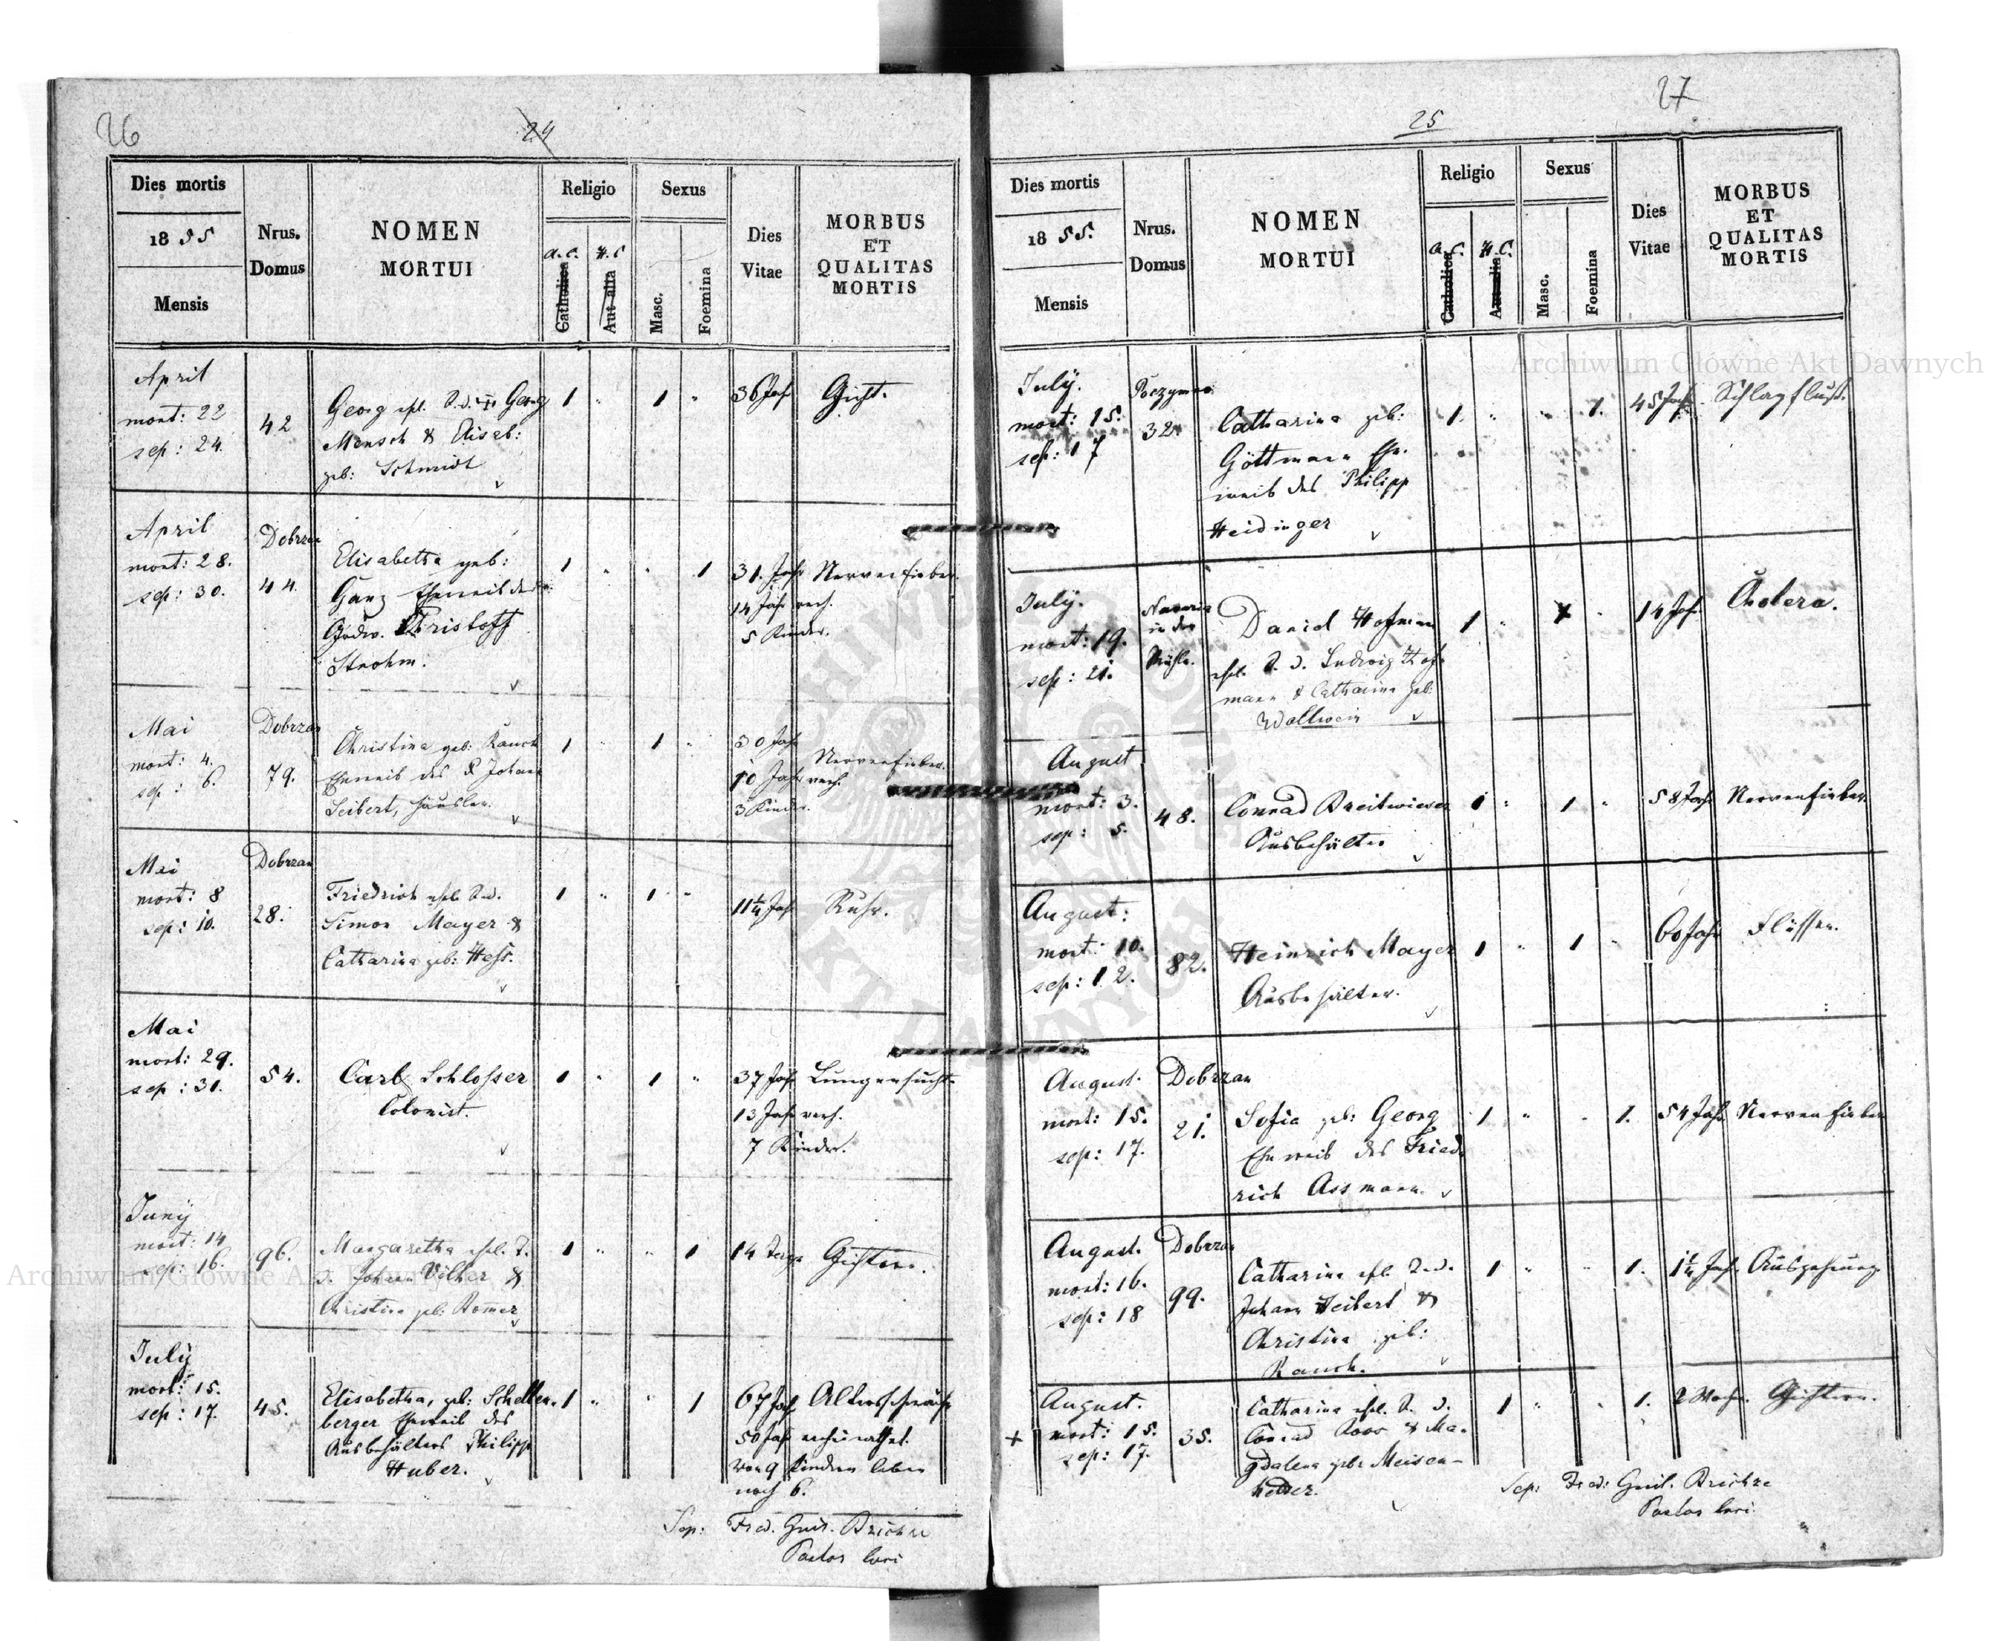 26
24
Dies mortis
1855
Mensis
Nrus. Domus
NOMEN MORTUI
Religio
a. C. Catholica
H. C
Sexus
Masc.
Foemina
Dies Vitae
MORBUS ET QUALITAS MORTIS
April
mort: 22
sep: 24.
42
Georg ehl. S. d. Georg
Mensch & Elisab:
geb: Schmidt
1 " 1 "
36 Jahr
Gicht.
April
mort: 28.
sep: 30.
Dobrzan
44.
Elisabetha geb:
Ganz Eheweib des
Christoff
Strohm.
1 " " 1
31. Jahr
14 Jahr verh.
5 Kinder.
Nervenfieber.
Mai
mort: 4.
sep: 6.
Dobrzan
79.
Christina geb: Rauch
Eheweib des Johann
Seibert, Häusler.
1 " 1 "
30 Jahr
10 Jahr verh.
3 Kinder.
Nervenfieber.
Mai
mort: 8
sep: 10.
Dobrzan
28.
Friedrich ehl. S. d.
Simon Mayer &
Catharina geb: Hess.
1 " 1 "
11¼ Jahr
Ruhr.
Mai
mort: 29.
sep: 31.
54.
Carl Schlosser
Colonist.
1 " 1 "
37 Jahr
13 Jahr verh.
7 Kinder.
Lungensucht.
Juny
mort: 14
sep: 16.
96.
Margaretha ehl. T.
d. Johann Völker &
Christina geb: Romer
1 " " 1
14 Tage
Gichtern.
July
mort: 15.
sep: 17.
45.
Elisabetha, geb: Schellen-
berger Eheweib des
Ausbehälters Philipp
Huber.
1 " " 1
67 Jahr
Altersschwäche
50 Jahr verheirathet.
von 9 Kindern leben
noch 6.
Sep: Fred. Guil. Brichze
Pastor loci
27
25
Dies mortis
1855.
Mensis
Nrus. Domus
NOMEN MORTUI
Religio
a. C. Catholica
H. C.
Sexus
Masc.
Foemina
Dies Vitae
MORBUS ET QUALITAS MORTIS
July.
mort: 15.
sep: 17
32.
Catharina geb:
Göttmann Ehe-
weib des Philipp
Heidinger
1. " " 1.
45 Jahr
Schlagfluss.
July.
mort: 19.
sep: 21.
Navaria
in der
Mühle.
Daniel Hofmann
ehl. S. d. Ludwig Hof-
mann & Catharina geb:
Wallwein
1 " 1 "
14 Jahr
Cholera.
August
mort: 3.
sep: 5.
48.
Conrad Breitwieser
Ausbehälter
1 " 1 "
58 Jahr
Nervenfieber.
August:
mort: 10.
sep: 12.
82.
Heinrich Mayer
Ausbehälter.
1 " 1 "
60 Jahr
August.
mort: 15.
sep: 17.
Dobrzan
21.
Sofia geb: Georg
Eheweib des Fried-
rich Assmann.
1 " " 1.
54 Jahr
Nervenfieber
August.
mort: 16.
sep: 18
Dobrzan
99.
Catharina ehl. T. d.
Johann Seibert &
Christina geb:
Rauch.
1 " " 1.
1¼ Jahr
Auszehrung.
August.
+ mort: 15.
sep: 17.
35.
Catharina ehl. T. d.
Conrad Roos & Ma-
gdalena geb: Meisen-
helder.
1 " " 1.
2 Woch.
Gichtern.
Sep: Fred: Guil. Brichze
Pastor loci.
Archiwum Główne Akt Dawnych
Archiwum Główne Akt Dawnych